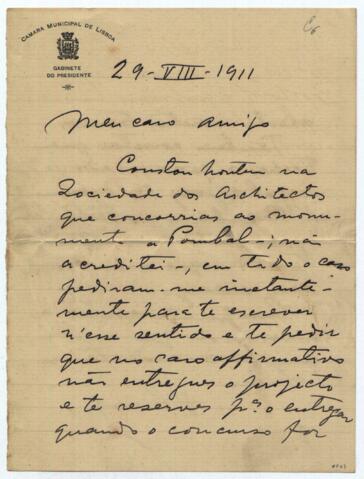 CAMARA MUNICIPAL DE LISBOA
GABINETE
DO PRESIDENTE
29-VIII-1911
Meu caro Amigo
Constou hontem na
Sociedade dos Architectos
que concorrias ao monu-
mento a Pombal-; não
acreditei-, em todo o caso
pediram-me instanti-
mente para te escrever
n'esse sentido e te pedir
que no caso affirmativo
não entregues o projecto
e te reserves pª o entregar
quando o concurso for